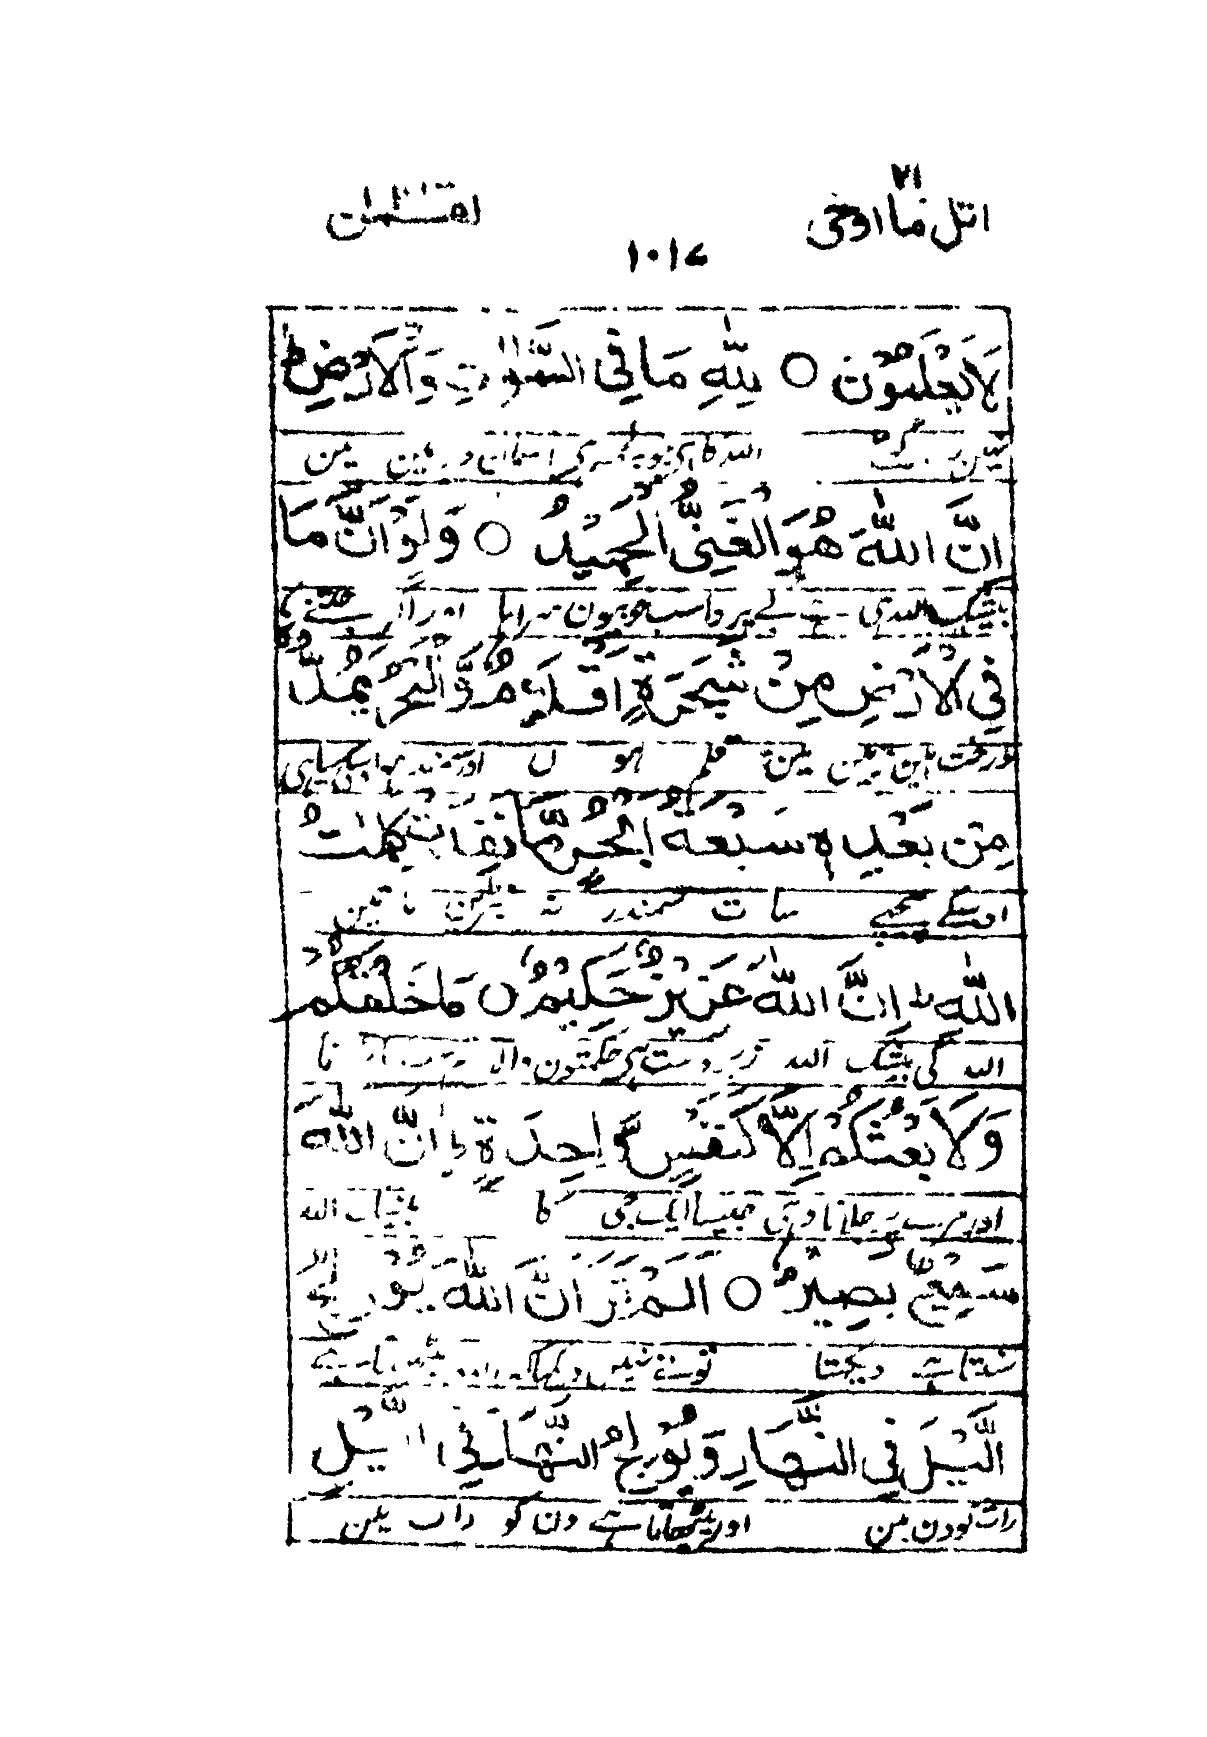 ٢١
اتل ما اوحی
لقمٰن
١٠١٧
لَا يَعْلَمُوْنَ ○ لِلّٰهِ مَا فِي السَّمٰوٰتِ وَالْاَرْضِ ط
اللہ کا ہی جو کچھ ہی آسمان و زمین مین
اِنَّ اللّٰهَ هُوَ الْغَنِيُّ الْحَمِيْدُ ○ وَلَوْ اَنَّ مَا
بیشک اللہ ہی ہے بے پروا سب خوبیون سراہا اور اگر جتنے
فِي الْاَرْضِ مِنْ شَجَرَةٍ اَقْلَامٌ وَّالْبَحْرُ يَمُدُّهٗ
درخت ہین زمین مین قلم ہوں اور سمندر ہو اسکی سیاہی
مِنْ بَعْدِهٖ سَبْعَةُ اَبْحُرٍ مَّا نَفِدَتْ كَلِمٰتُ
اوسکے پیچھے سات سمندر نہ نبڑین باتین
اللّٰهِ ط اِنَّ اللّٰهَ عَزِيْزٌ حَكِيْمٌ ○ مَا خَلْقُكُمْ
اللہ کی بیشک اللہ زبردست ہی حکمتون والا
وَلَا بَعْثُكُمْ اِلَّا كَنَفْسٍ وَّاحِدَةٍ ط اِنَّ اللّٰهَ
اور مرے پر جلانا وہی جیسا ایک جی کا بیشک اللہ
سَمِيْعٌ بَصِيْرٌ ○ اَلَمْ تَرَ اَنَّ اللّٰهَ يُوْلِجُ
سنتا ہے دیکھتا تونے نہین دیکھا کہ اللہ
الَّيْلَ فِي النَّهَارِ وَيُوْلِجُ النَّهَارَ فِي الَّيْلِ
رات کو دن مین اور بیٹھاتا ہے دن کو رات مین